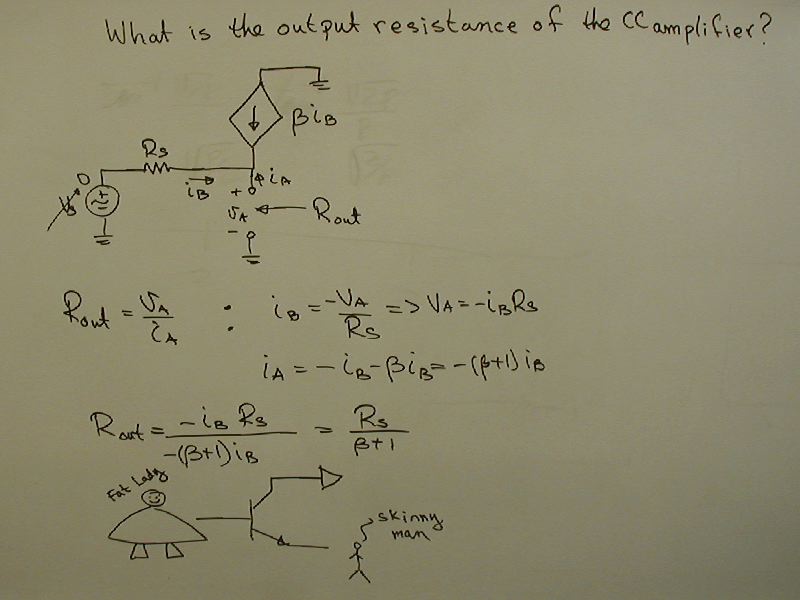 What is the output resistance of the CC amplifier?
βiB
Rs
0
iB
iA
+
Vs
vA
Rout
-
Rout = vA/iA : iB = -VA/Rs => VA = -iBRs
iA = -iB-βiB = -(β+1)iB
Rout = -iB Rs/-(β+1)iB = Rs/β+1
Fat Lady
skinny
man